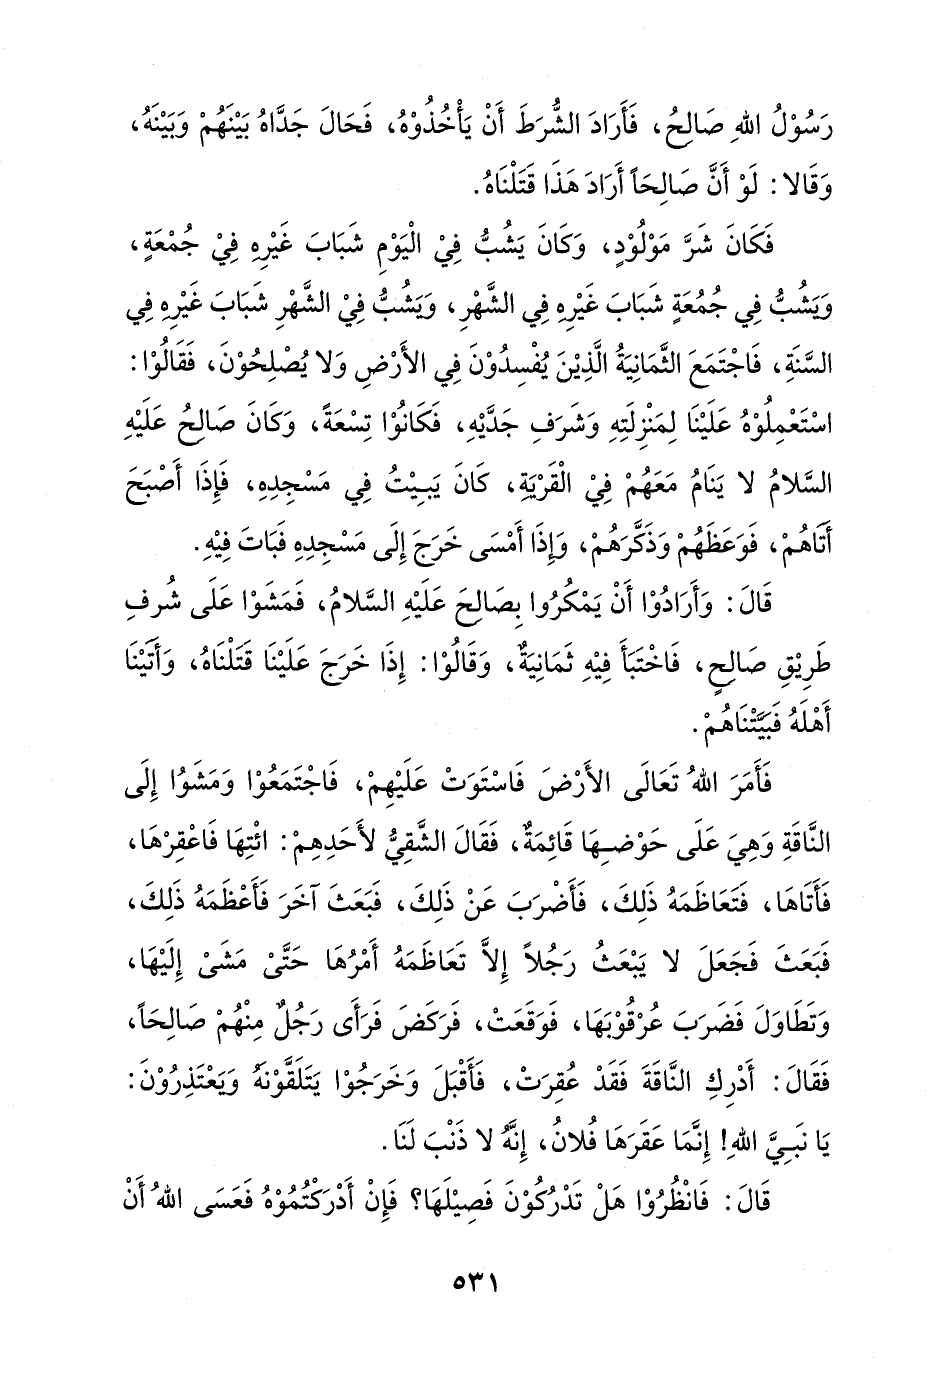 رَسُوْلُ اللهِ صَالِحُ، فَأَرَادَ الشُّرَطَ أَنْ يَأْخُذُوْهُ، فَحَالَ جَدَّاهُ بَيْنَهُمْ وَبَيْنَهُ،
وَقَالا: لَوْ أَنَّ صَالِحَاً أَرَادَ هَذَا قَتَلْنَاهُ.
فَكَانَ شَرَّ مَوْلُوْدٍ، وَكَانَ يَشُبُّ فِيْ الْيَوْمِ شَبَابَ غَيْرِهِ فِيْ جُمْعَةٍ،
وَيَشُبُّ فِي جُمُعَةٍ شَبَابَ غَيْرِهِ فِي الشَّهْرِ، وَيَشُبُّ فِيْ الشَّهْرِ شَبَابَ غَيْرِهِ فِي
السَّنَةِ، فَاجْتَمَعَ الثَّمَانِيَةُ الَّذِيْنَ يُفْسِدُوْنَ فِي الأَرْضِ وَلا يُصْلِحُوْنَ، فَقَالُوْا:
اسْتَعْمِلُوْهُ عَلَيْنَا لِمَنْزِلَتِهِ وَشَرَفِ جَدَّيْهِ، فَكَانُوْا تِسْعَةً، وَكَانَ صَالِحُ عَلَيْهِ
السَّلامُ لا يَنَامُ مَعَهُمْ فِيْ الْقَرْيَةِ، كَانَ يَبِيْتُ فِي مَسْجِدِهِ، فَإِذَا أَصْبَحَ
أَتَاهُمْ، فَوَعَظَهُمْ وَذَكَّرَهُمْ، وَإِذَا أَمْسَى خَرَجَ إِلَى مَسْجِدِهِ فَبَاتَ فِيْهِ.
قَالَ: وَأَرَادُوْا أَنْ يَمْكُرُوا بِصَالِحَ عَلَيْهِ السَّلامُ، فَمَشَوْا عَلَى شُرفِ
طَرِيْقِ صَالِحٍ، فَاخْتَبَأَ فِيْهِ ثَمَانِيَةٌ، وَقَالُوْا: إِذَا خَرَجَ عَلَيْنَا قَتَلْنَاهُ، وَأَتَيْنَا
أَهْلَهُ فَبَيَّتْنَاهُمْ.
فَأَمَرَ اللهُ تَعَالَى الأَرْضَ فَاسْتَوَتْ عَلَيْهِمْ، فَاجْتَمَعُوْا وَمَشَوُا إِلَى
النَّاقَةِ وَهِيَ عَلَى حَوْضِهَا قَائِمَةٌ، فَقَالَ الشَّقِيُّ لأَحَدِهِمْ: ائْتِهَا فَاعْقِرْهَا،
فَأَتَاهَا، فَتَعَاظَمَهُ ذَلِكَ، فَأَضْرَبَ عَنْ ذَلِكَ، فَبَعَثَ آخَرَ فَأَعْظَمَهُ ذَلِكَ،
فَبَعَثَ فَجَعَلَ لا يَبْعَثُ رَجُلاً إِلاَّ تَعَاظَمَهُ أَمْرُهَا حَتَّىْ مَشَىْ إِلَيْهَا،
وَتَطَاوَلَ فَضَرَبَ عُرْقُوْبَهَا، فَوَقَعَتْ، فَرَكَضَ فَرَأَى رَجُلٌ مِنْهُمْ صَالِحَاً،
فَقَالَ: أَدْرِكِ النَّاقَةَ فَقَدْ عُقِرَتْ، فَأَقْبَلَ وَخَرَجُوْا يَتَلَقَّوْنَهُ وَيَعْتَذِرُوْنَ:
يَا نَبِيَّ اللهِ! إِنَّمَا عَقَرَهَا فُلانُ، إِنَّهُ لا ذَنْبَ لَنَا.
قَالَ: فَانْظُرُوْا هَلْ تَدْرُكُوْنَ فَصِيْلَهَا؟ فَإِنْ أَدْرَكْتُمُوْهُ فَعَسَى اللهُ أَنْ
٥٣١